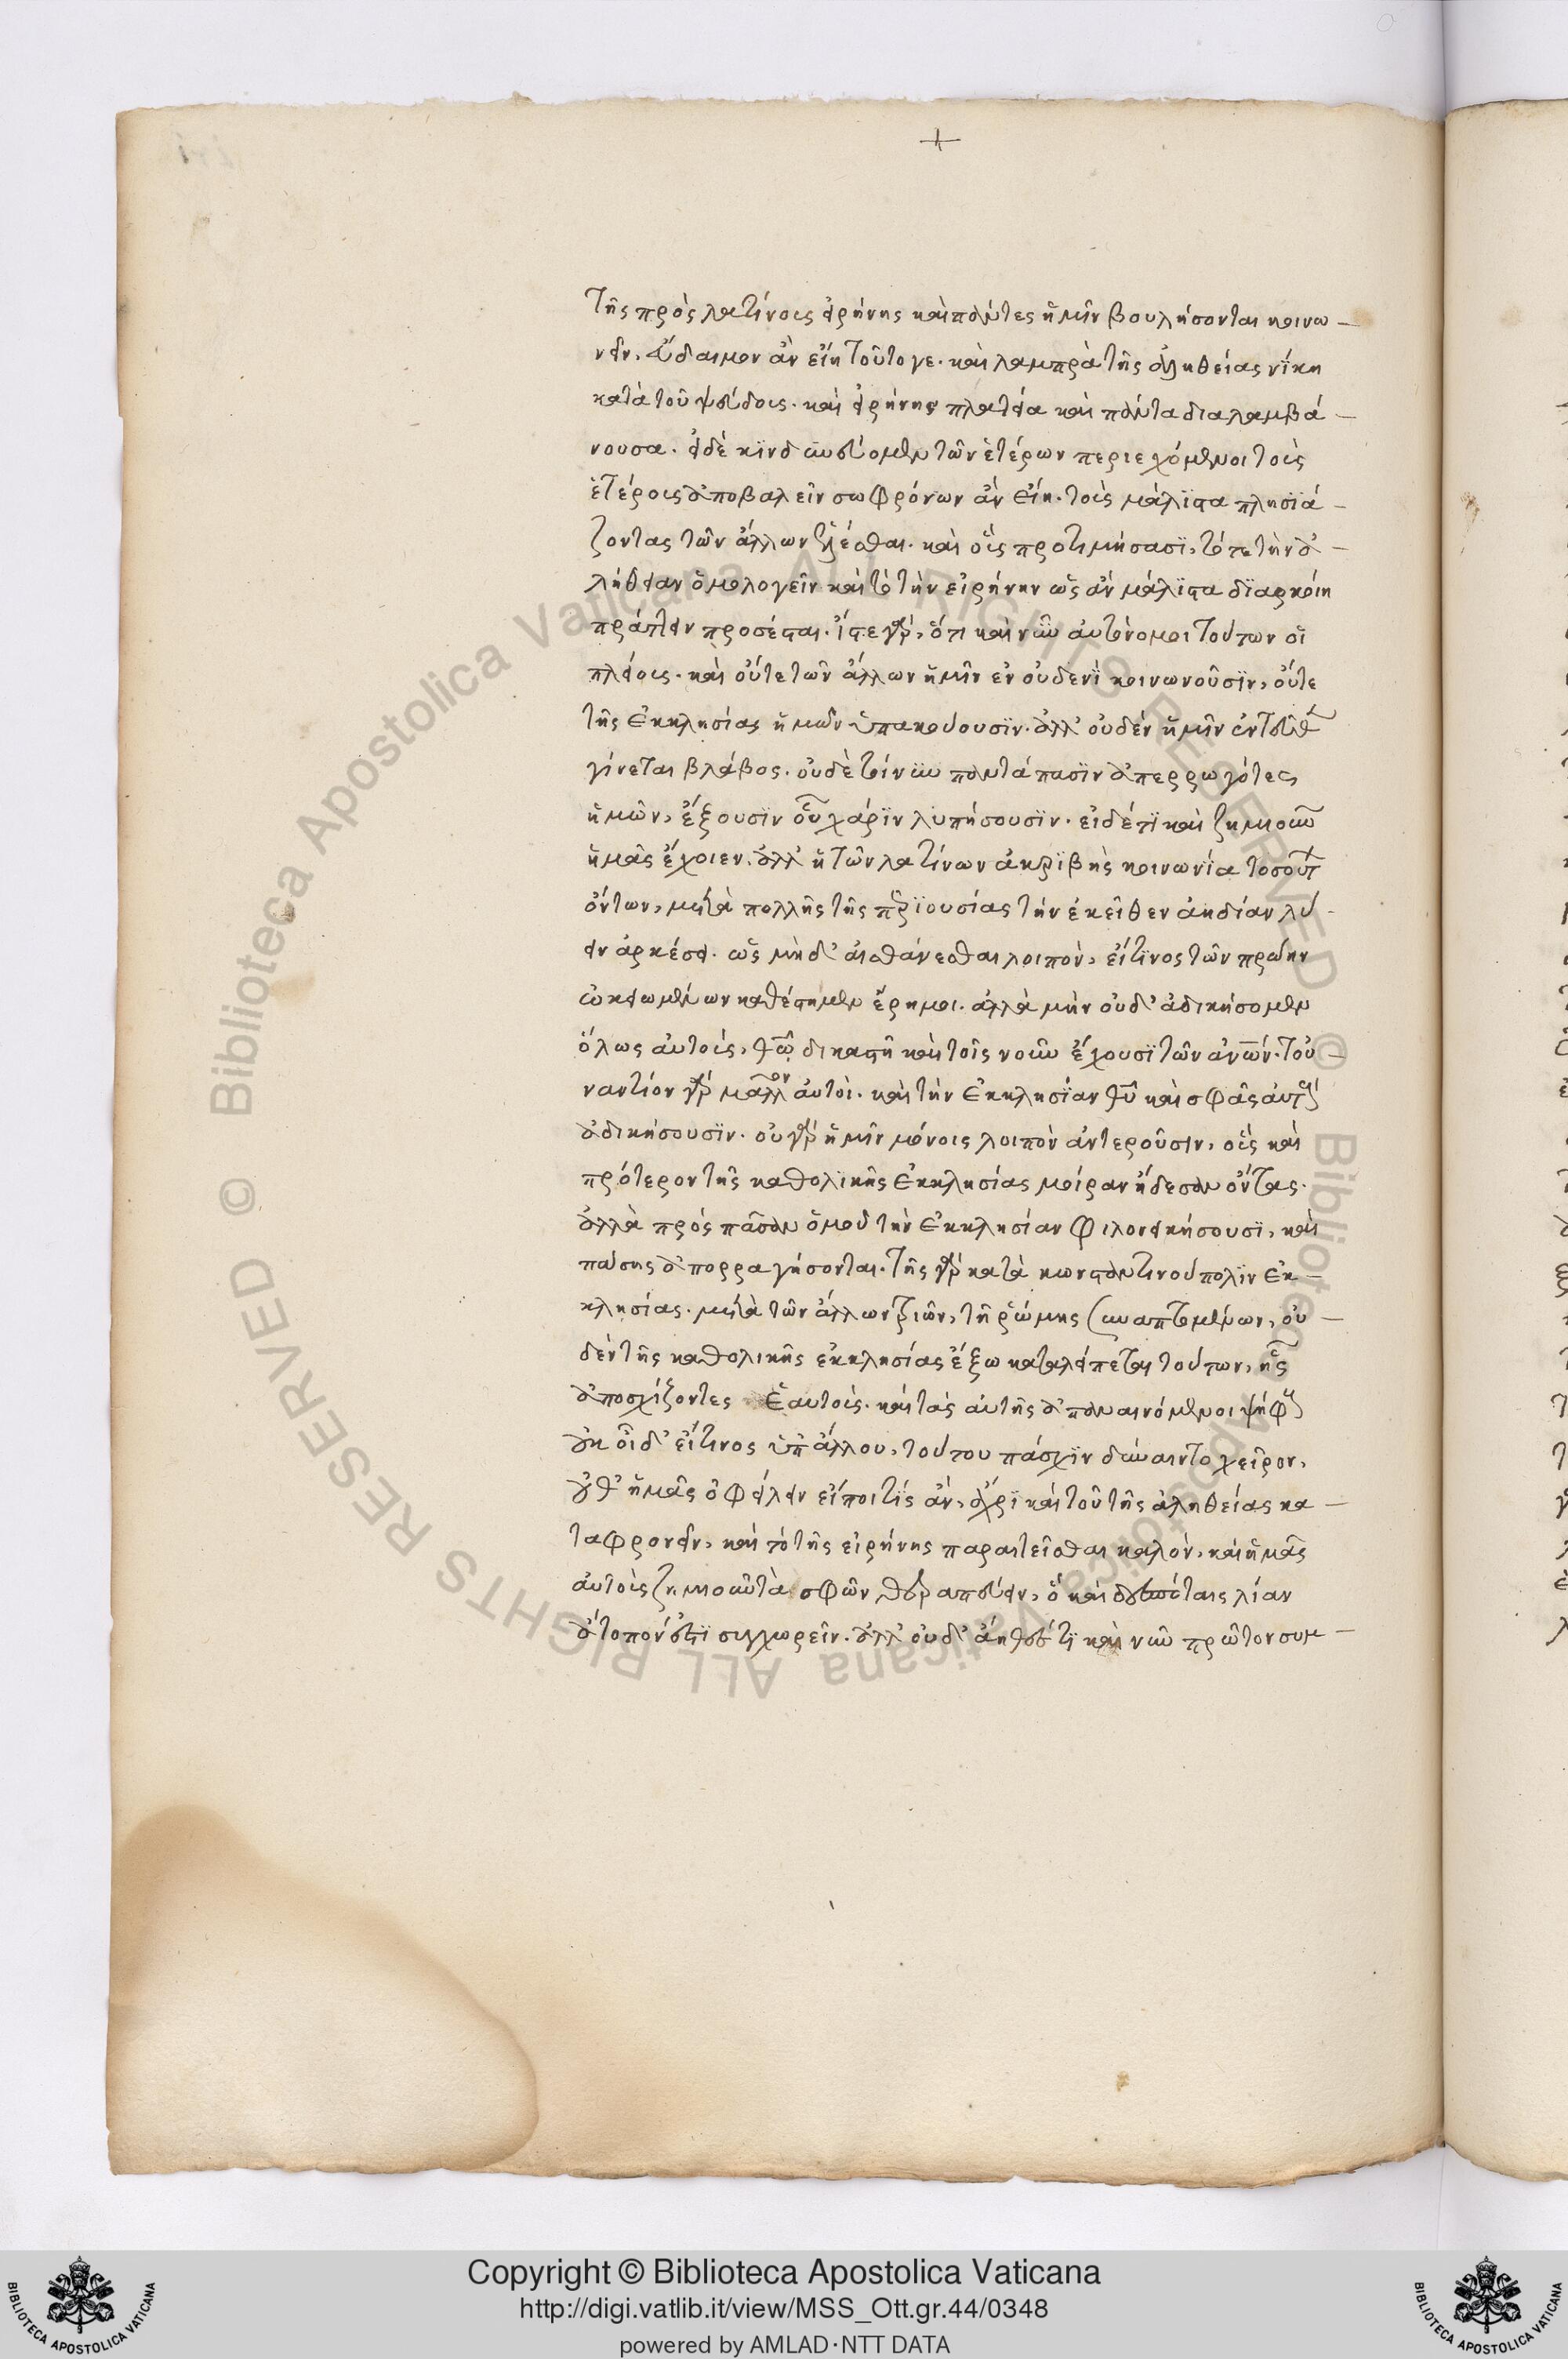 +
τῆς πρὸς λατίνους εἰρήνης καὶ πάντες ἡμῖν βουλήσονται κοινω-
νεῖν. εὔδαιμον ἂν εἴη τοῦτό γε. καὶ λαμπρὰ τῆς ἀληθείας νίκη
κατὰ τοῦ ψεύδους. καὶ εἰρήνης πλατεῖα καὶ πάντα διαλαμβά-
νουσα. εἰ δὲ κινδυνεύομεν τῶν ἑτέρων περιεχόμενοι τοὺς
ἑτέρους ἀποβαλεῖν σωφρόνων ἂν εἴη. τοὺς μάλιστα πλησιά-
ζοντας τῶν ἄλλων αἱρέεσθαι. καὶ οὓς προτιμήσασι, τό τε τὴν ἀ-
λήθειαν ὁμολογεῖν καὶ τὸ τὴν εἰρήνην ὡς ἂν μάλιστα διαρκοίη
πράττειν προσέσται. ἴστε γὰρ, ὅτι καὶ νῦν αὐτόνομοι τούτων οἱ
πλείους. καὶ οὔτε τῶν ἄλλων ἡμῖν ἐν οὐδενὶ κοινωνοῦσιν, οὔτε
τῆς ἐκκλησίας ἡμῶν ὑπακούουσιν. ἀλλ' οὐδὲν ἡμῖν ἐντεῦθεν
γίνεται βλάβος. οὐδὲ τοίνυν παντάπασιν ἀπερρωγότες
ἡμῶν, ἕξουσιν οὗ χάριν λυπήσουσιν. εἰ δέ τι καὶ ζημιοῦν
ἡμᾶς ἔχοιεν. ἀλλ' ἡ τῶν λατίνων ἀκριβὴς κοινωνία τοσούτων
ὄντων, μετὰ πολλῆς τῆς περιουσίας τὴν ἐκεῖθεν ἀηδίαν λύ-
ειν ἀρκέσει. ὡς μηδ' αἰσθάνεσθαι λοιπὸν, εἴ τινος τῶν πρώην
ὠκειωμένων καθέστημεν ἔρημοι. ἀλλὰ μὴν οὐδ' ἀδικήσομεν
ὅλως αὐτοὺς, θεῷ δικαστῇ καὶ τοῖς νοῦν ἔχουσι τῶν ἀνων. τοὐ-
ναντίον γὰρ μᾶλλον αὐτοὶ. καὶ τὴν ἐκκλησίαν θυ καὶ σφᾶς αὐτοὺς
ἀδικήσουσιν. οὐ γὰρ ἡμῖν μόνοις λοιπὸν ἀντεροῦσιν, οὓς καὶ
πρότερον τῆς καθολικῆς ἐκκλησίας μοίραν ᾔδεσαν ὄντας.
ἀλλὰ πρὸς πᾶσαν ὁμοῦ τὴν ἐκκλησίαν φιλονεικήσουσι, καὶ
πάσης ἀπορραγήσονται. τῆς γὰρ κατὰ κωνσταντινούπολιν ἐκ-
κλησίας. μετὰ τῶν ἄλλων τριῶν, τῇ ῥώμης συναπτομένων, οὐ-
δὲν τῆς καθολικῆς ἐκκλησίας ἔξω καταλείπεται τούτων, ἧς
ἀποσχίζοντες ἑαυτοὺς. καὶ τὰς αὐτῆς ἀπαναινόμενοι ψήφους
οὐκ οἶδ' εἴ τινος ὑπ' ἄλλου, τούτου πάσχειν δύναιντο χεῖρον,
οὐθ' ἡμᾶς ὀφείλειν εἴποι τίς ἂν, ἄχρι καὶ τοῦ τῆς ἀληθείας κα-
ταφρονεῖν, καὶ τὸ τῆς εἰρήνης παραιτεῖσθαι καλὸν, καὶ ἡμᾶς
αὐτοὺς ζημιοῦν τὰ σφῶν θεραπεύειν, ὃ καὶ δεσπόταις λίαν
ἄτοπόν ἐστι συγχωρεῖν. ἀλλ' οὐδ' ἄηθές τι καὶ νῦν πρῶτον συμ-